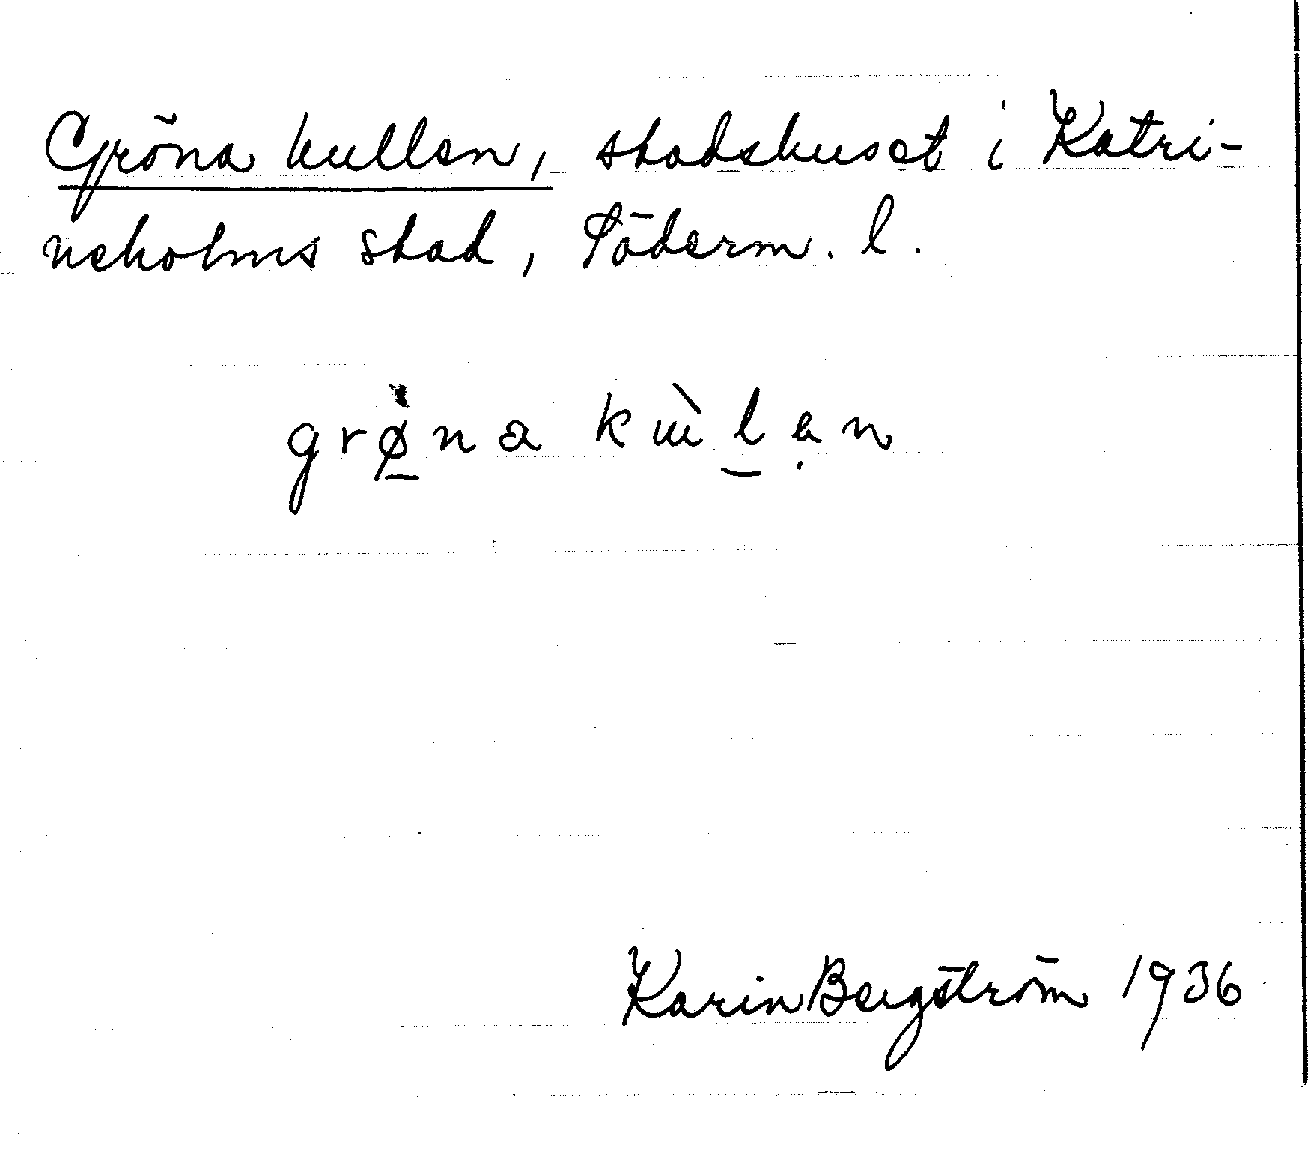 Gröna kullen, stadshuset i Katri-
neholms stad, Söderm. l.
grø̠̀na kɯ̀l̠ạn
Karin Bergström 1936